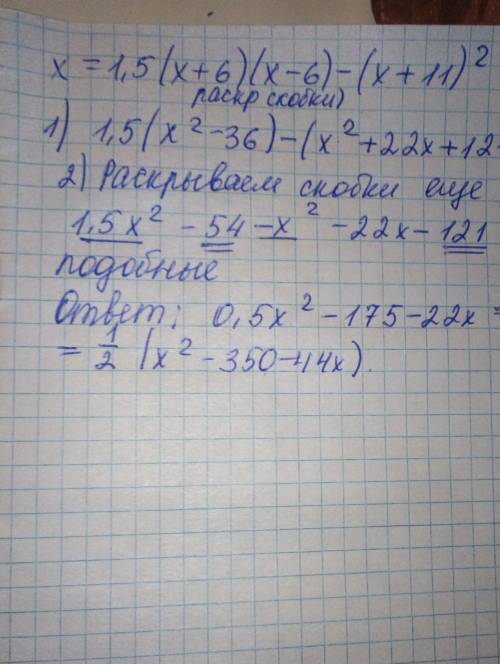 x = 1,5(x+6)(x-6)-(x+11)²
раскр скобки)
1) 1,5(x²-36)-(x²+22x+12
2) Раскрываем скобки еще
1,5x² - 54 - x² - 22x - 121
подобные
Ответ: 0,5x² - 175 - 22x =
= 1/2 (x² - 350 - 44x).